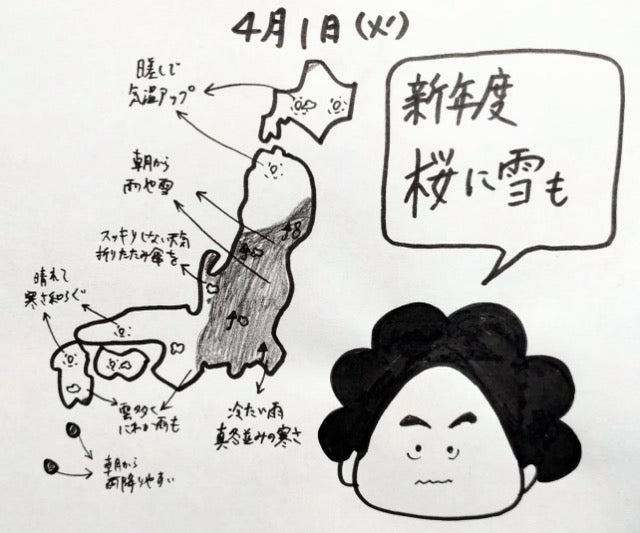 4月1日(火)
新年度
桜に雪も
暖しで
気温アップ
朝から
雨や雪
スッキリしない天気
折りたたみ傘を
晴れて
寒さ和らぐ
雲多く
にわか雨も
冷たい雨
真冬並みの寒さ
朝から
雨降りやすい